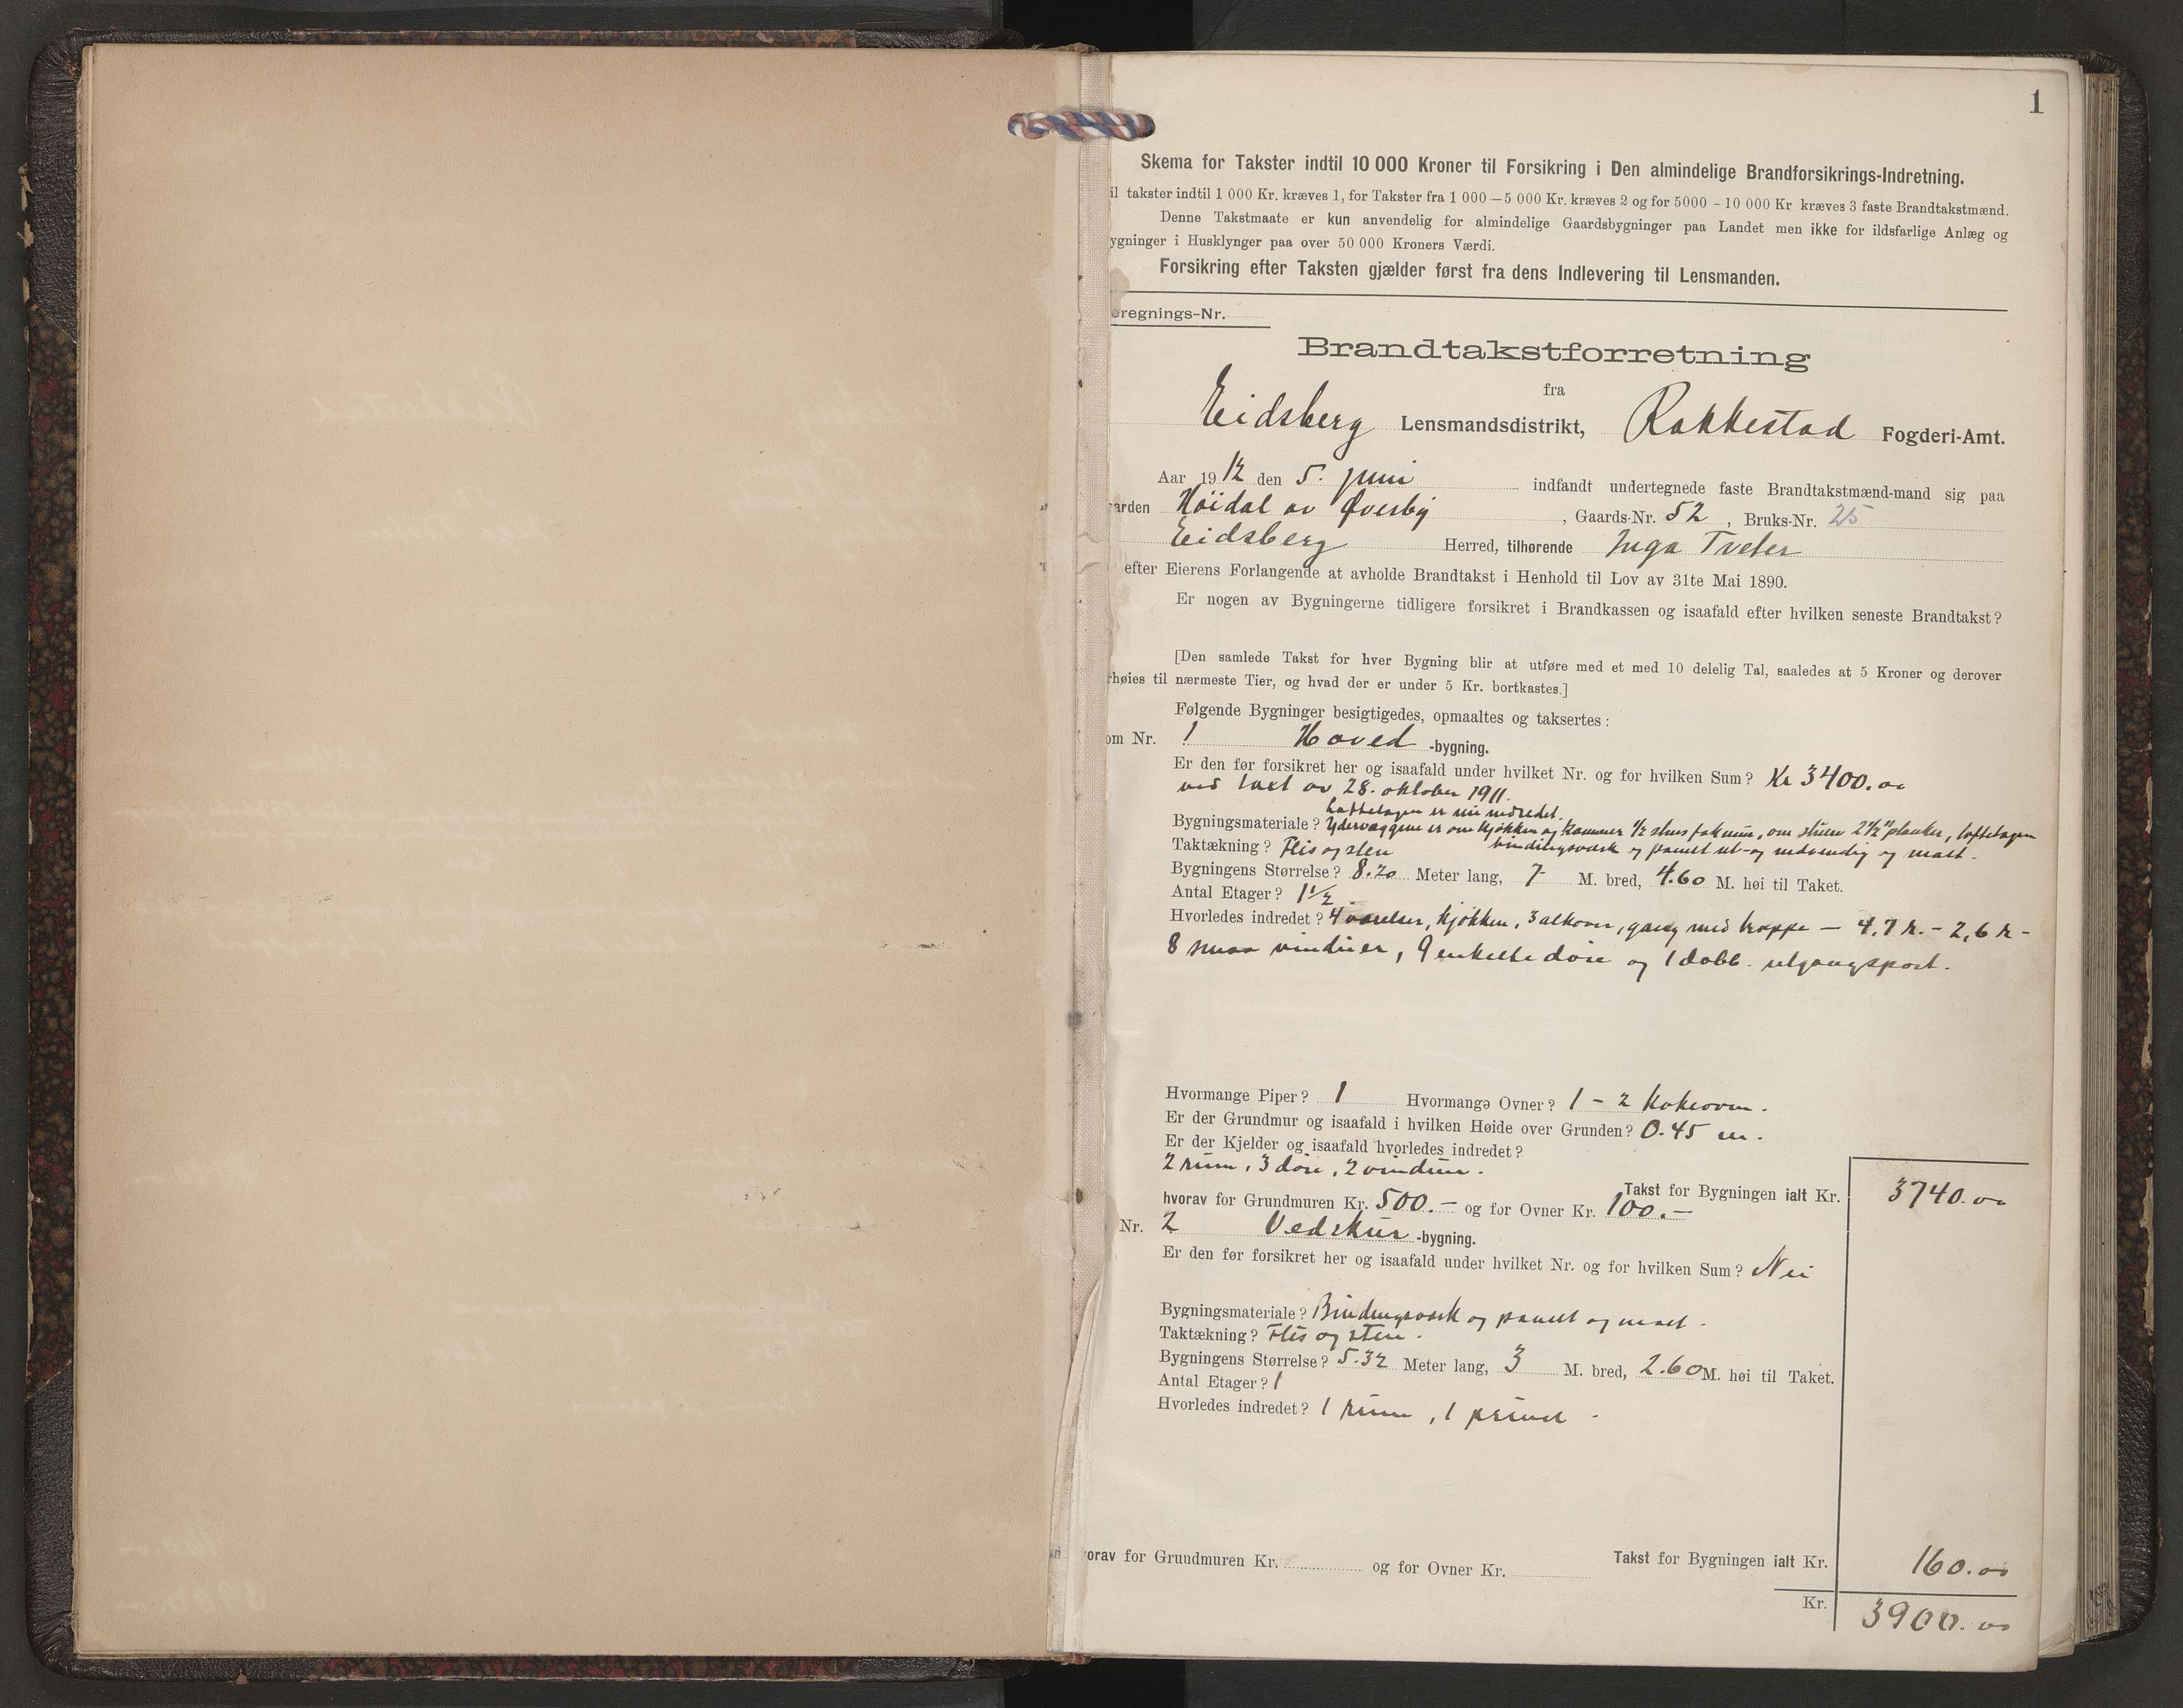 1
Skema for Takster indtil 10 000 Kroner til Forsikring i Den almindelige Brandforsikrings-Indretning.
il takster indtil 1 000 Kr. kræves 1, for Takster fra 1 000 — 5 000 Kr. kræves 2 og for 5000 – 10 000 Kr kræves 3 faste Brandtakstmænd.
Denne Takstmaate er kun anvendelig for almindelige Gaardsbygninger paa Landet men ikke for ildsfarlige Anlæg og
ygninger i Husklynger paa over 50 000 Kroners Værdi.
Forsikring efter Taksten gjælder først fra dens Indlevering til Lensmanden.
eregnings-Nr.
Brandtakstforretning
fra
Eidsberg Lensmandsdistrikt, Rakkestad Fogderi-Amt.
Aar 1912 den 5. juni indfandt undertegnede faste Brandtakstmænd-mand sig paa
arden Höidal av Øverby, Gaards-Nr. 52, Bruks-Nr. 25
Eidsberg Herred, tilhørende Inga Tveter
efter Eierens Forlangende at avholde Brandtakst i Henhold til Lov av 31te Mai 1890.
Er nogen av Bygningerne tidligere forsikret i Brandkassen og isaafald efter hvilken seneste Brandtakst?
[Den samlede Takst for hver Bygning blir at utføre med et med 10 delelig Tal, saaledes at 5 Kroner og derover
rhøies til nærmeste Tier, og hvad der er under 5 Kr. bortkastes.]
Følgende Bygninger besigtigedes, opmaaltes og taksertes:
om Nr. 1 Hoved -bygning.
Er den før forsikret her og isaafald under hvilket Nr. og for hvilken Sum? Kr 3400.00
ved taxt av 28. oktober 1911.
Loftetagen er nu indredet.
Bygningsmateriale? Ydervæggene er om kjøkken og kammer 1/2 stens , om stuen 2 1/2" planker, loftetagen
Taktækning? Flis og sten bindingsværk og panelt ut- og indvendig og malt.
Bygningens Størrelse? 8.20 Meter lang, 7 M. bred, 4.60 M. høi til Taket.
Antal Etager? 1 1/2
Hvorledes indredet? 4 værelser, kjøkken, 3 alkover, gang med trappe — 4,7 r. – 2,6 r –
8 smaa vinduer, 9 enkelte döre og 1 dobb. utgangsport.
Hvormange Piper? 1 Hvormange Ovner? 1 – 2 Kokeovn.
Er der Grundmur og isaafald i hvilken Høide over Grunden? 0.45 m.
Er der Kjelder og isaafald hvorledes indredet?
2 rum, 3 döre, 2 vinduer.
Takst for Bygningen ialt Kr. 3740.00
hvorav for Grundmuren Kr. 500.– og for Ovner Kr. 100.–
Nr. 2 Vedskur -bygning.
Er den før forsikret her og isaafald under hvilket Nr. og for hvilken Sum? Nei
Bygningsmateriale? Bindingsværk og panelt og malt.
Taktækning? Flis og sten.
Bygningens Størrelse? 5.32 Meter lang, 3 M. bred, 2.60 M. høi til Taket.
Antal Etager? 1
Hvorledes indredet? 1 rum, 1 privet.
orav for Grundmuren Kr. og for Ovner Kr. Takst for Bygningen ialt Kr. 160.00
Kr. 3900.00